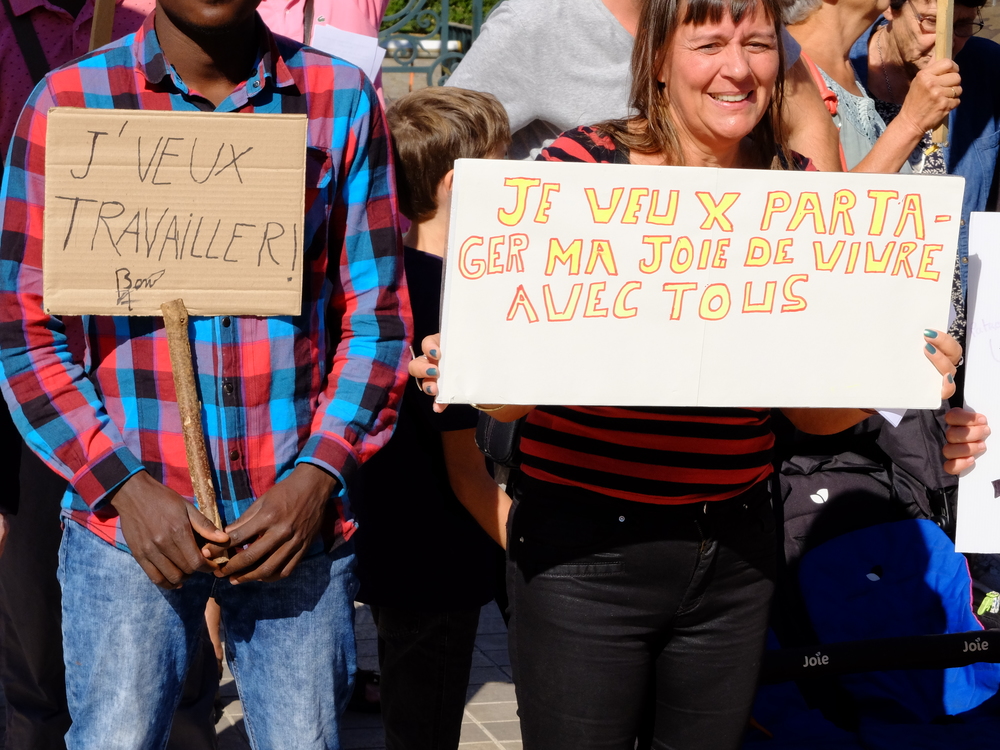 J'VEUX
TRAVAILLER!
JE VEUX PARTA-
GER MA JOIE DE VIVRE
AVEC TOUS
Joie
Joie